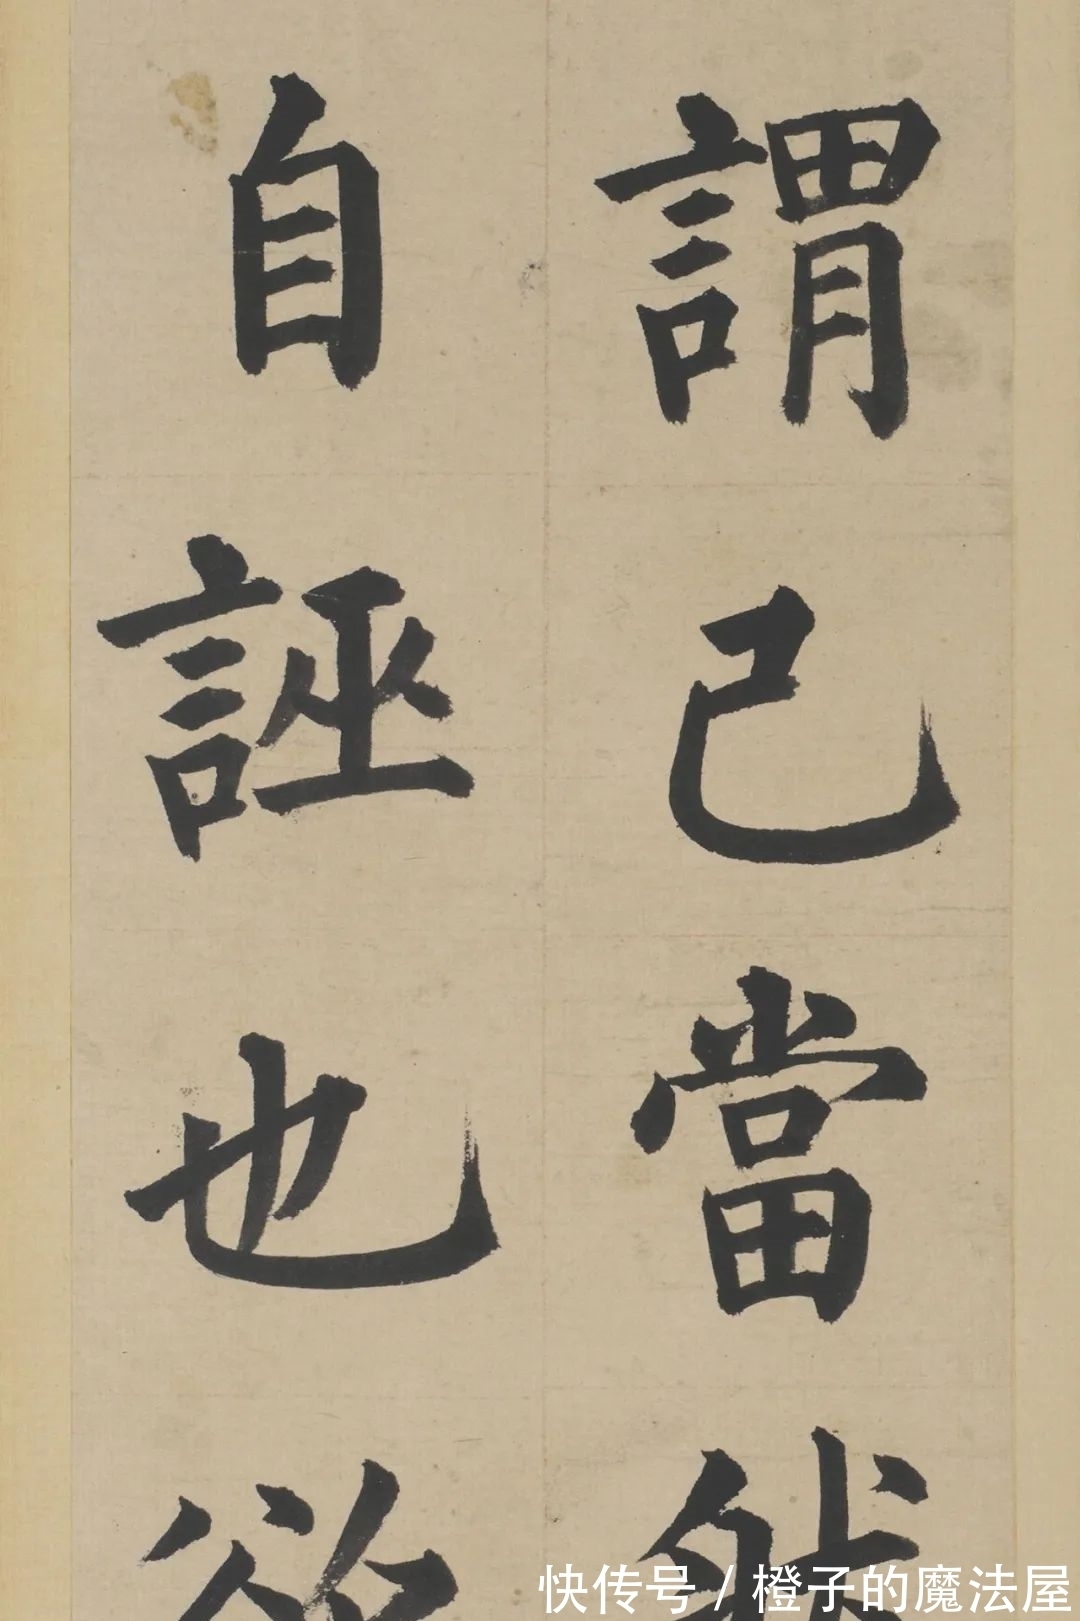 謂己當然
自誣也欲
快传号 / 橙子的魔法屋